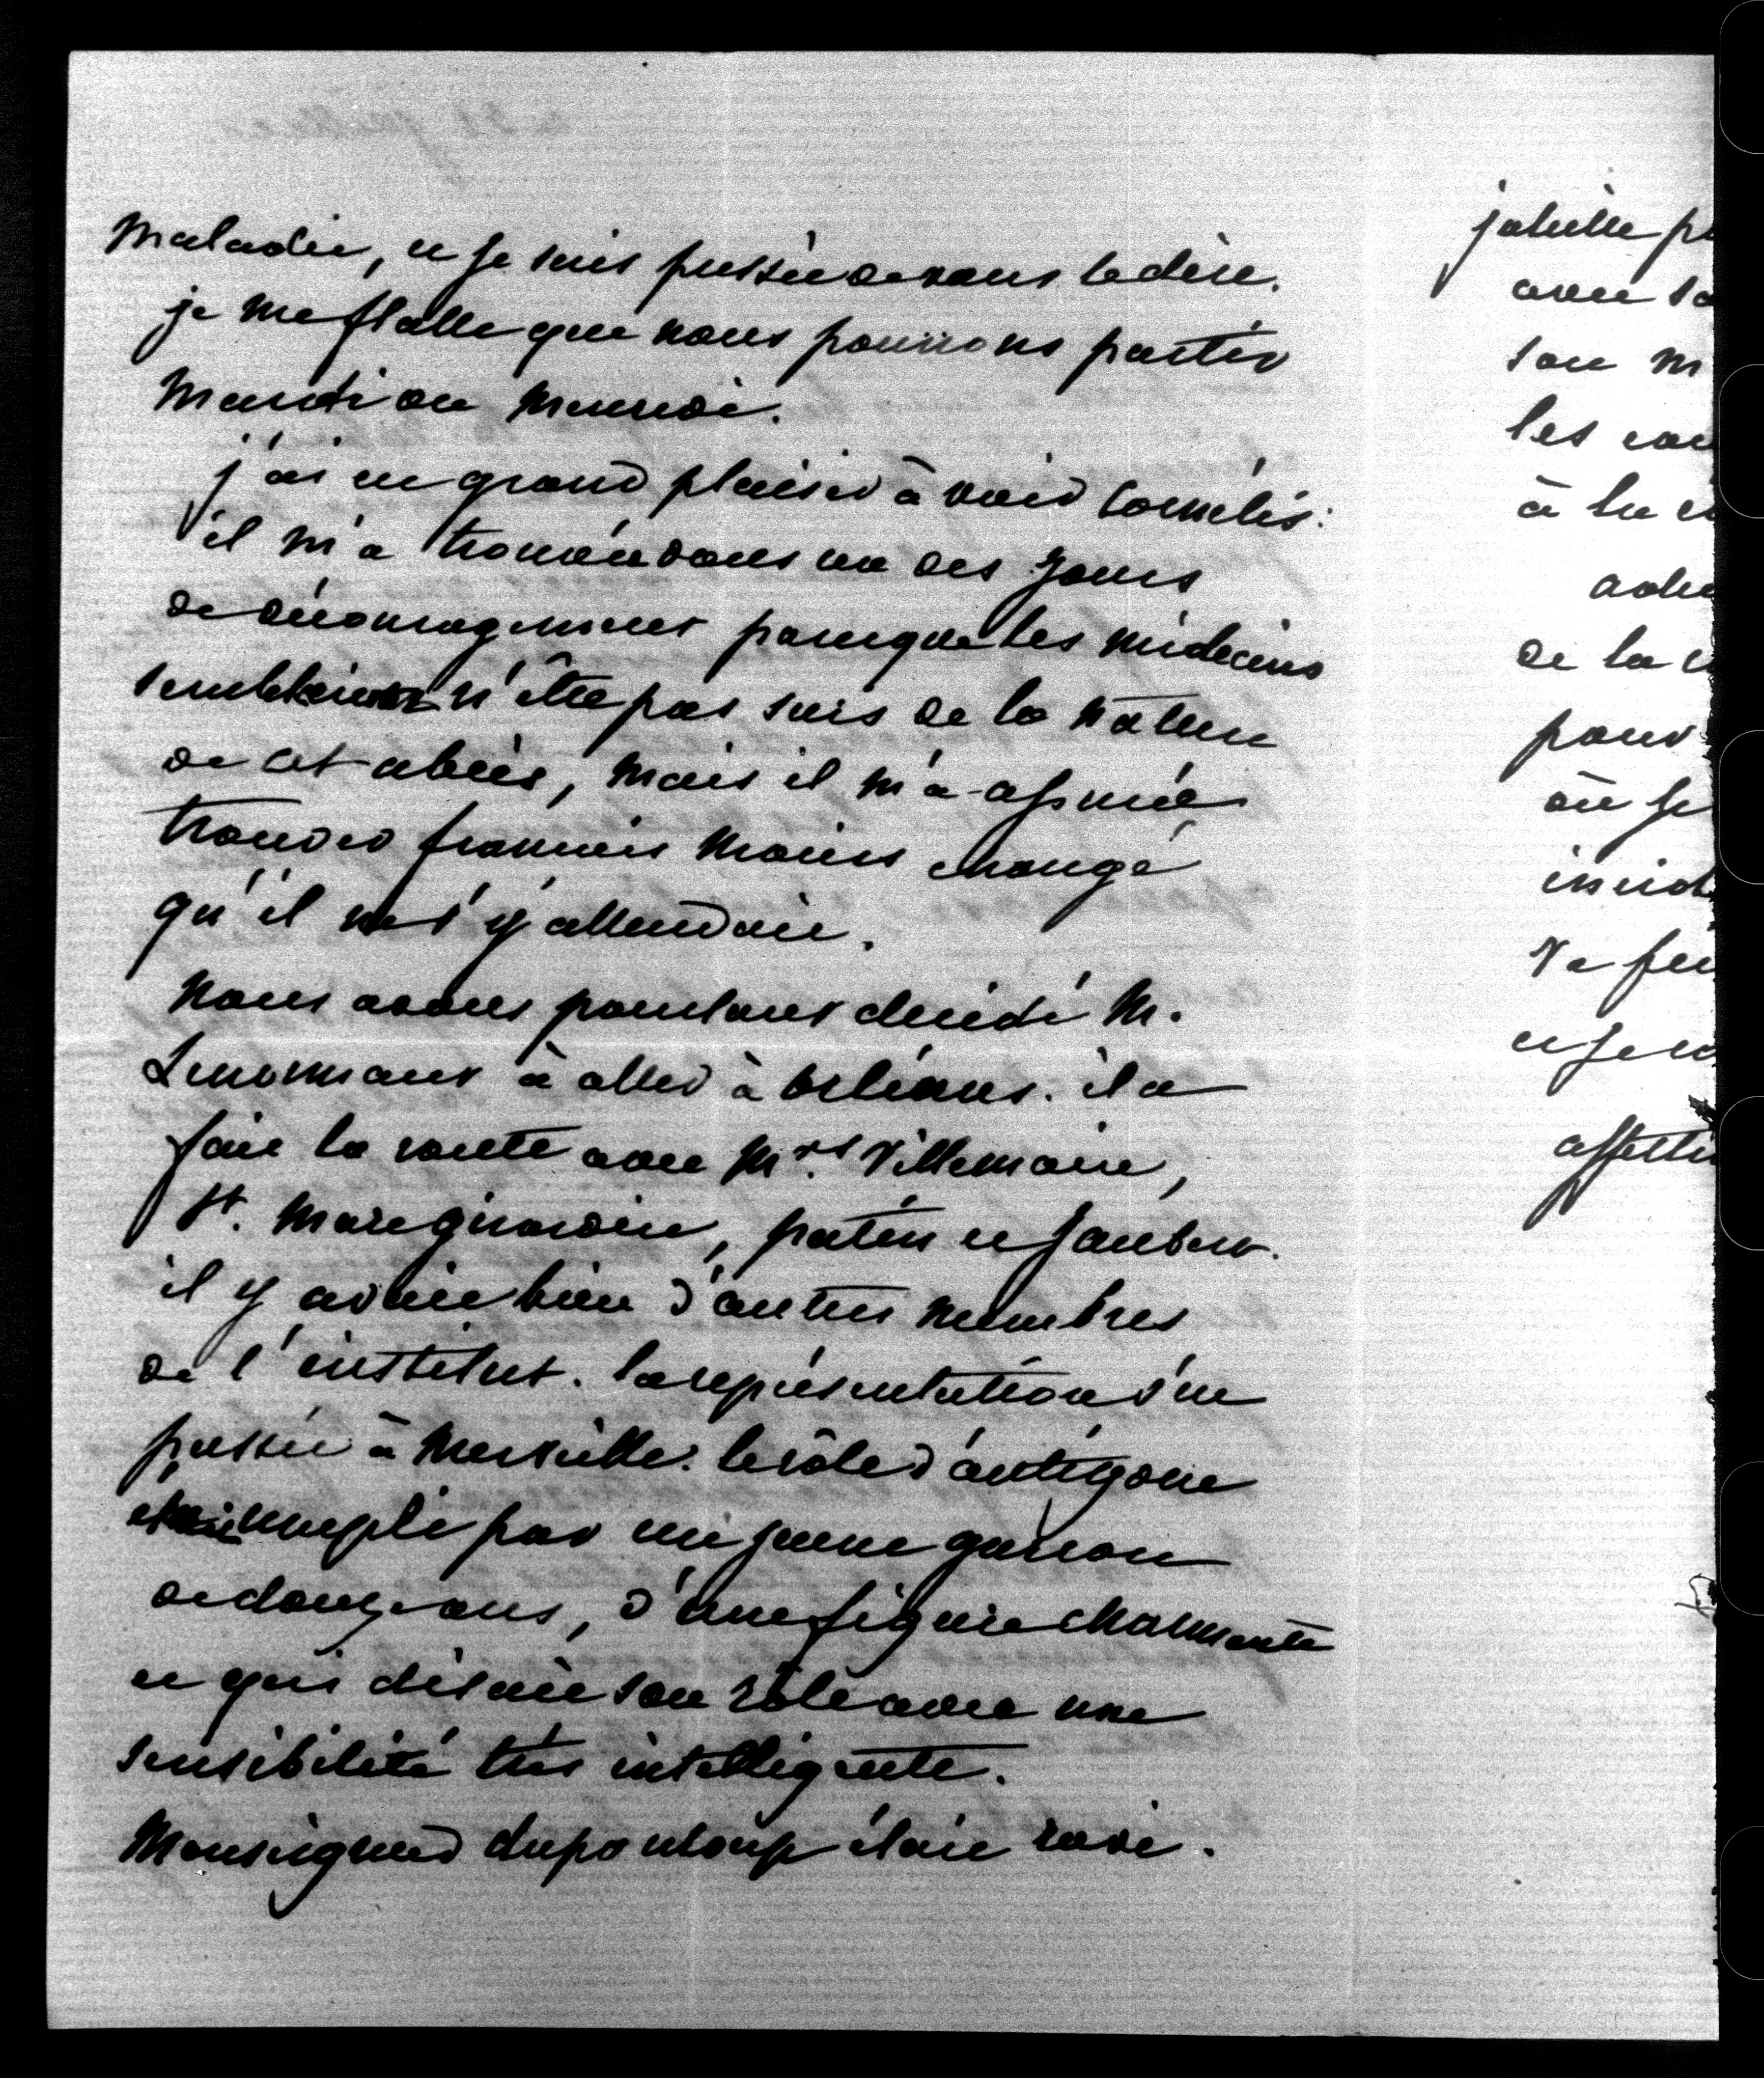 maladie, et je suis pressée de vous le dire.
je me flatte que nous pourrons partir
mardi ou mercredi.
j'ai eu grand plaisir à voir Cornelis:
il m'a trouvée dans un des jours
de découragement parce que les médecins
semblaient n'être pas surs de la nature
de cet abcès, mais il m'a assuré
trouver françois moins changé
qu'il ne s'y attendait.
nous avons pourtant décidé M.
Lenormant à aller à Orléans. il a
fait la route avec Mrs. Villemain,
St. Marc girardin, patin et jaubert.
il y avait bien d'autres membres
de l'institut. la représentation s'est
passée à merveille. le rôle d'antigone
était rempli par un jeune garçon
de douze ans, d'une figure charmante
et qui disait son rôle avec une
sensibilité très intelligente.
Monseigneur dupanloup était ravi.
avec
son m
les
à la
de la
pour
où je
va
et je